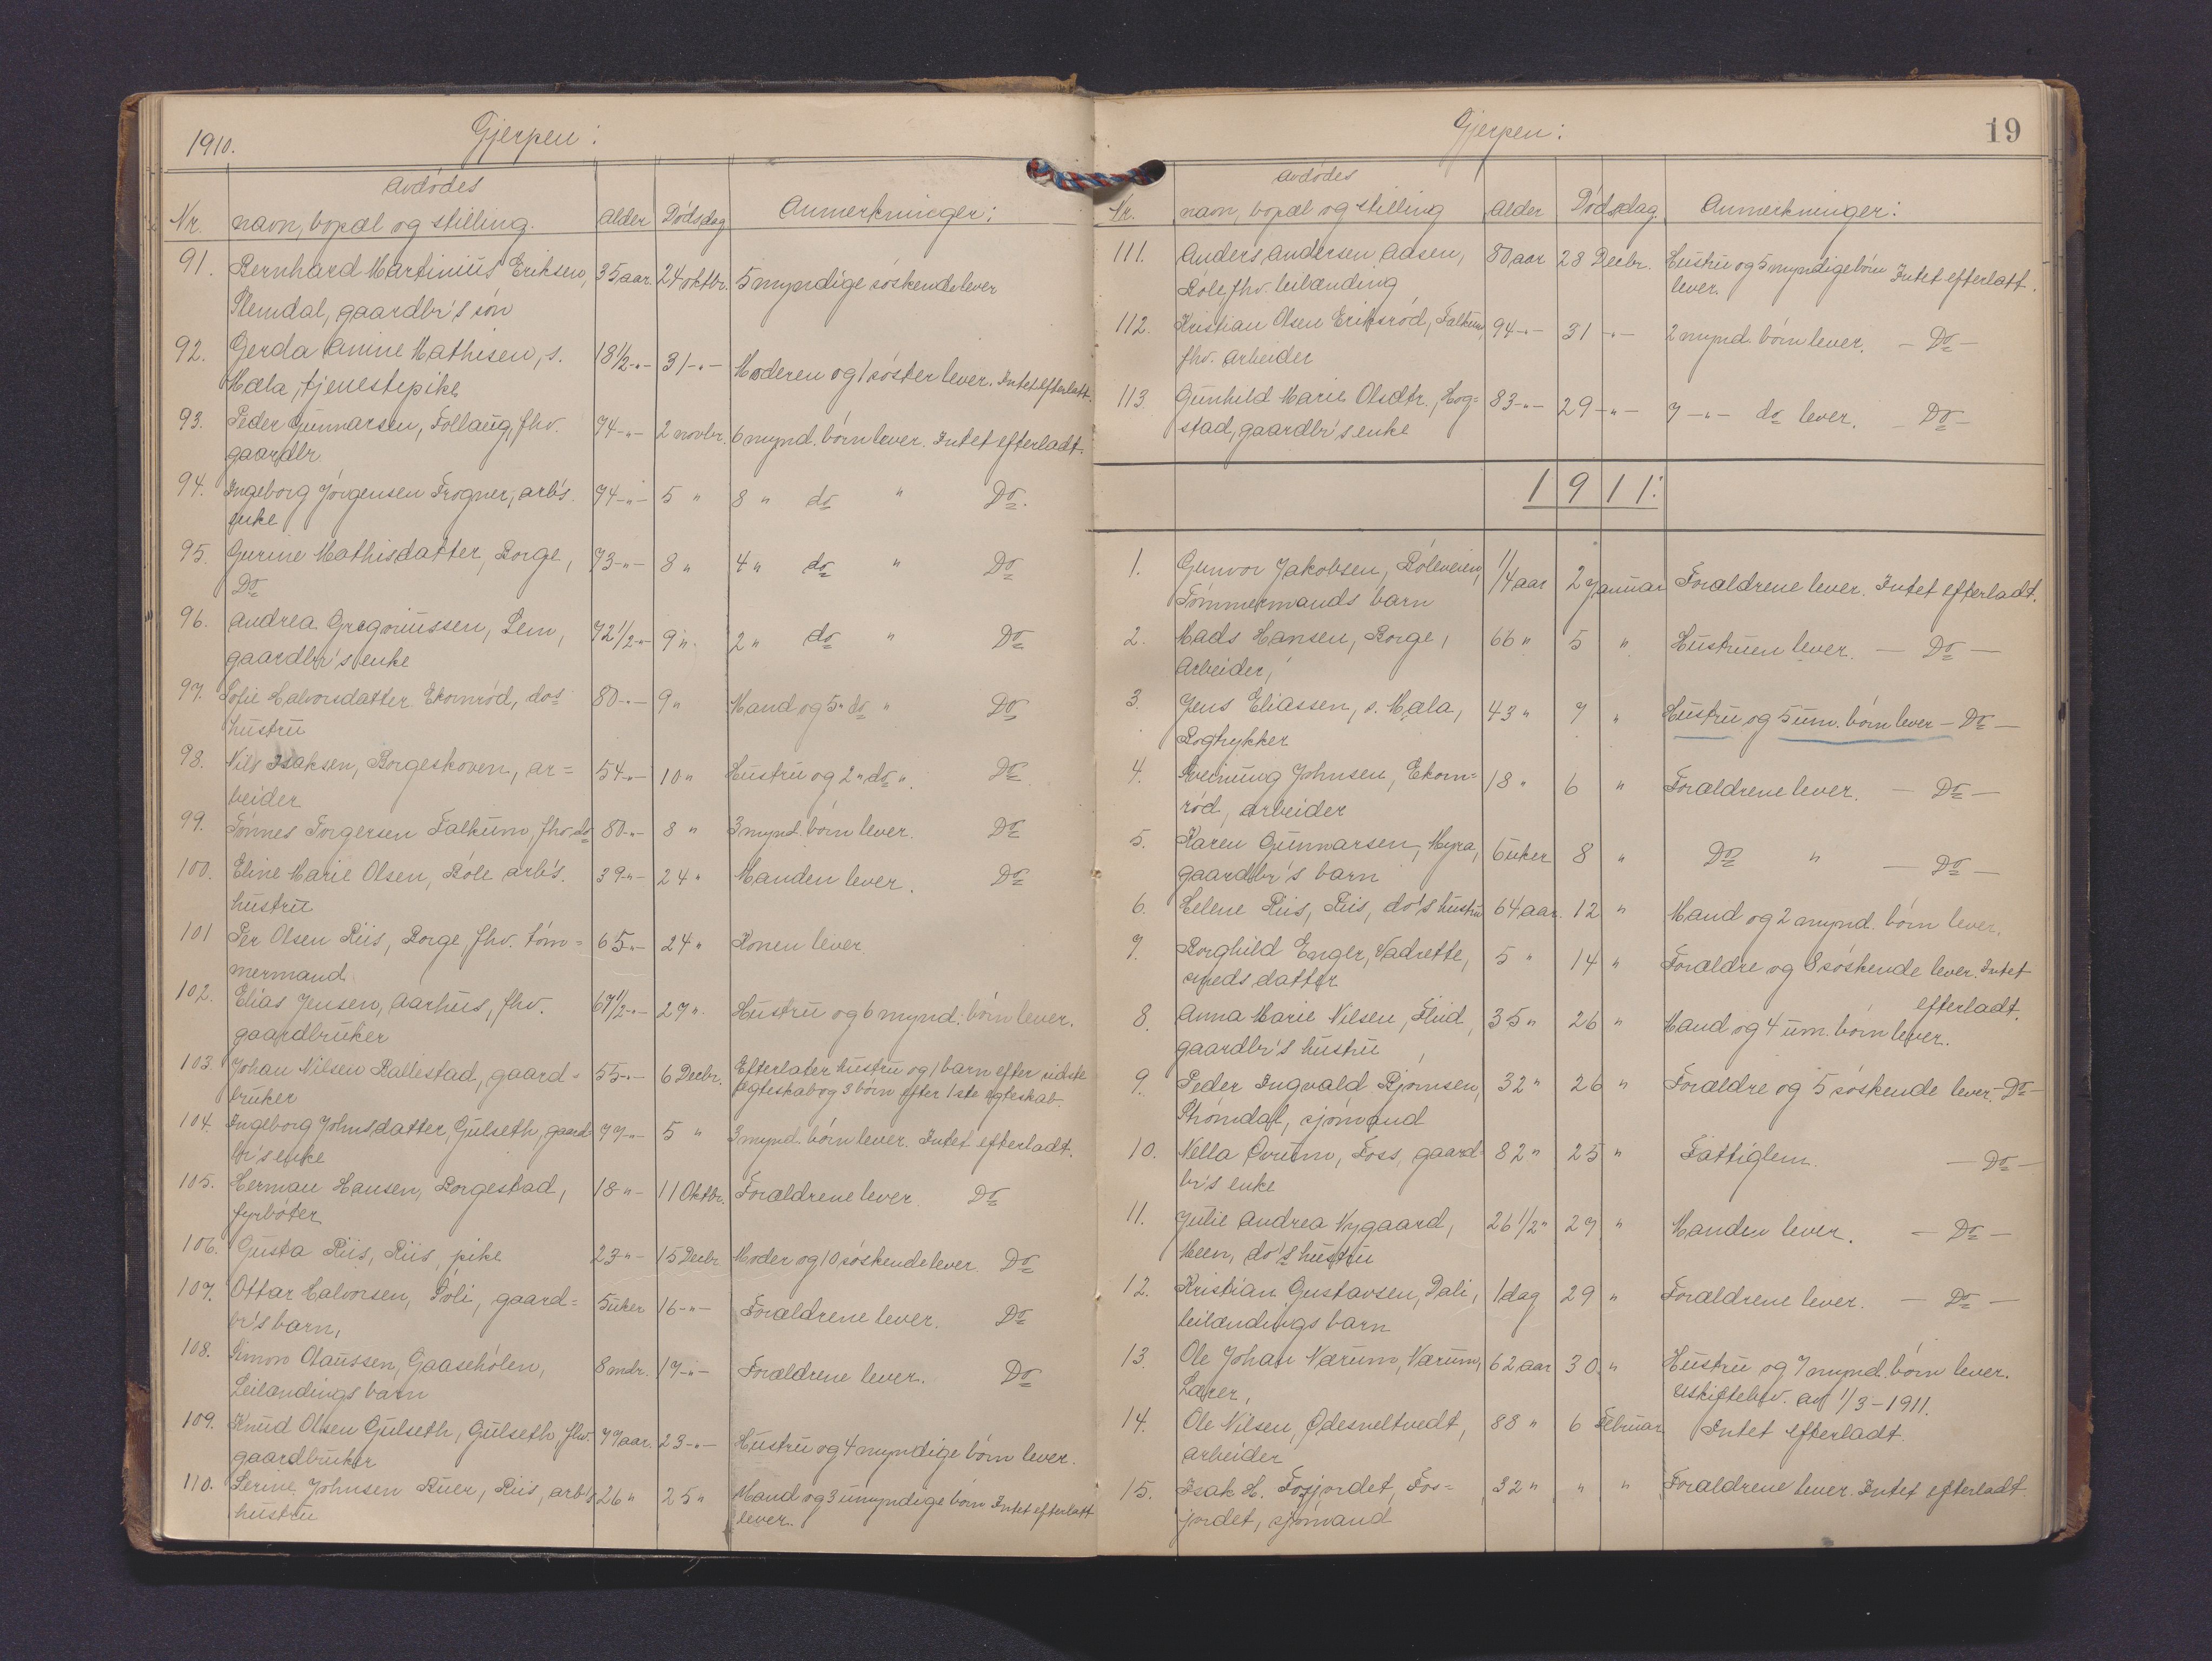 1910. Gjerpen:
Avdødes
Nr. navn, bopæl og stilling. Alder Dødsdag Anmerkninger:
91. Bernhard Martinius Eriksen, 35 aar. 24 oktbr. 5 myndige søskende lever
Stemdal, gaardbr's søn
92. Gerda Amine Mathisen, s. 18 1/2 -"- 31 -"- Moderen og 1 søster lever. Intet efterlatt.
Mæla, tjenestepike
93. Peder Gunnarsen, Follaug, fhv. 74 -"- 2 novbr. 6 mynd. børn lever. Intet efterladt.
gaardbr
94. Ingeborg Jørgensen Frogner, arb's. 74 -"- 5 " 8 " do " Do.
enke
95. Gurine Mathisdatter, Borge, 73 -"- 8 " 4 " do " Do
Do
96. Andrea Gregoriussen, Lem, 72 1/2 -"- 9 " 2 " do " Do
gaardbr's enke
97. Sofie Halvorsdatter Ekornrød, dos 80 -"- 9 " Mand og 5 " do " Do
hustru
98. Nils Isaksen, Borgeskoven, ar= 54 -"- 10 " Hustru og 2 " do ". Do
beider
99. Tønnes Torgersen Falkum, fhv. do 80 -"- 8 " 3 mynd. børn lever. Do
100. Eline Marie Olsen, Bøle arb's. 39 -"- 24 " Manden lever. Do
hustru
101 Per Olsen Riis, Borge, fhv. tøm= 65 -"- 24 " Konen lever
mermand.
102. Elias Jensen, Aarhus, fhv. 67 1/2 -"- 27 ". Hustru og 6 mynd. børn lever.
gaardbruker
103. Johan Nilsen Ballestad, gaard= 55 -"- 6 Decbr. Efterlater hustru og 1 barn efter sidste
bruker ægteskab og 3 børn efter 1ste ægteskab.
104. Ingeborg Johnsdatter, Gulseth, gaard 77 -"- 5 " 3 mynd. børn lever. Intet efterladt.
br's enke
105. Herman Hansen, Borgestad, 18 -"- 11 Oktbr. Forældrene lever. Do
fyrbøter
106. Gusta Riis, Riis, pike 23 -"- 15 Decbr Moder og 10 søskende lever. Do
107. Ottar Halvorsen, Doli, gaard= 5 uker 16 -"- Forældrene lever. Do
br's barn,
108. Simon Olaussen, Gaasehølen, 8 mdr. 17 -"- Forældrene lever. Do
Leilændings barn
109. Knud Olsen Gulseth, Gulseth, fhv. 77 aar. 23 -"- Hustru og 4 myndige børn lever.
gaardbruker
110. Serine Johnsen Buer, Riis, arb's 26 " 25 " Mand og 3 umyndige børn Intet efterlatt
hustru lever.
Gjerpen: 19
Avdødes
Nr. navn, bopæl og stilling Alder Dødsdag. Anmerkninger:
111. Anders Andersen Aasen, 80 aar 28 Decbr. Hustru og 5 myndige børn Intet efterlatt.
Bøle fhv. leilænding lever.
112. Kristian Olsen Eriksrød, Falkum, 94 -"- 31 -"- 2 mynd. børn lever. - Do -
fhv. arbeider
113 Gunhild Marie Olsdtr., Hog= 83 -"- 29 -"- 7 -"- do lever. - Do -
stad, gaardbr's enke
1911:
1. Gunvor Jakobsen, Böleveien, 1/4 aar 2 Januar Forældrene lever. Intet efterladt.
Tømmermands barn
2. Mads Hansen, Borge, 66 " 5 " Hustruen lever. - Do -
arbeider,
3. Jens Eliassen, s. Mæla, 43 " 7 " Hustru og 5 um. børn lever - Do -
Bogtrykker
4. Sveinung Johnsen, Ekorn= 18 " 6 " Forældrene lever. - Do -
rød, arbeider
5. Karen Gunnarsen, Myra, 6 uker 8 " Do " - Do -
gaardbr's barn
6. Helene Riis, Riis, do's hustru 64 aar. 12 " Mand og 2 mynd. børn lever.
7. Borghild Enger, Vadrette, 5 " 14 " Forældre og 8 søskende lever. Intet
smeds datter efterladt.
8. Anna Marie Nilsen, Flid 35 " 26 " Mand og 4 um. børn lever.
gaardbr's hustru
9. Peder Ingvald Bjørnsen, 32 " 26 " Forældre og 5 søskende lever - Do -
Strømdal, sjømand
10. Nella Ovrum, Foss, gaard= 82 " 25 " Fattiglem. - Do -
br's enke
11. Julie Andrea Nygaard, 26 1/2 " 27 " Manden lever. - Do -
Meen, do's hustru
12. Kristian Gustavsen, Dali, 1 dag 29 " Forældrene lever. - Do -
leilændings barn
13. Ole Johan Nærum, Nærum, 62 aar 30. " Hustru og 7 mynd. børn lever.
Lærer, Uskiftebev. af 1/3-1911.
14. Ole Nilsen, Ødesneltvedt, 88 " 6 Februar Intet efterladt.
arbeider
15. Isak H. Fosjordet, Fos= 32 " " " Forældrene lever. Intet efterladt
jordet, sjømand